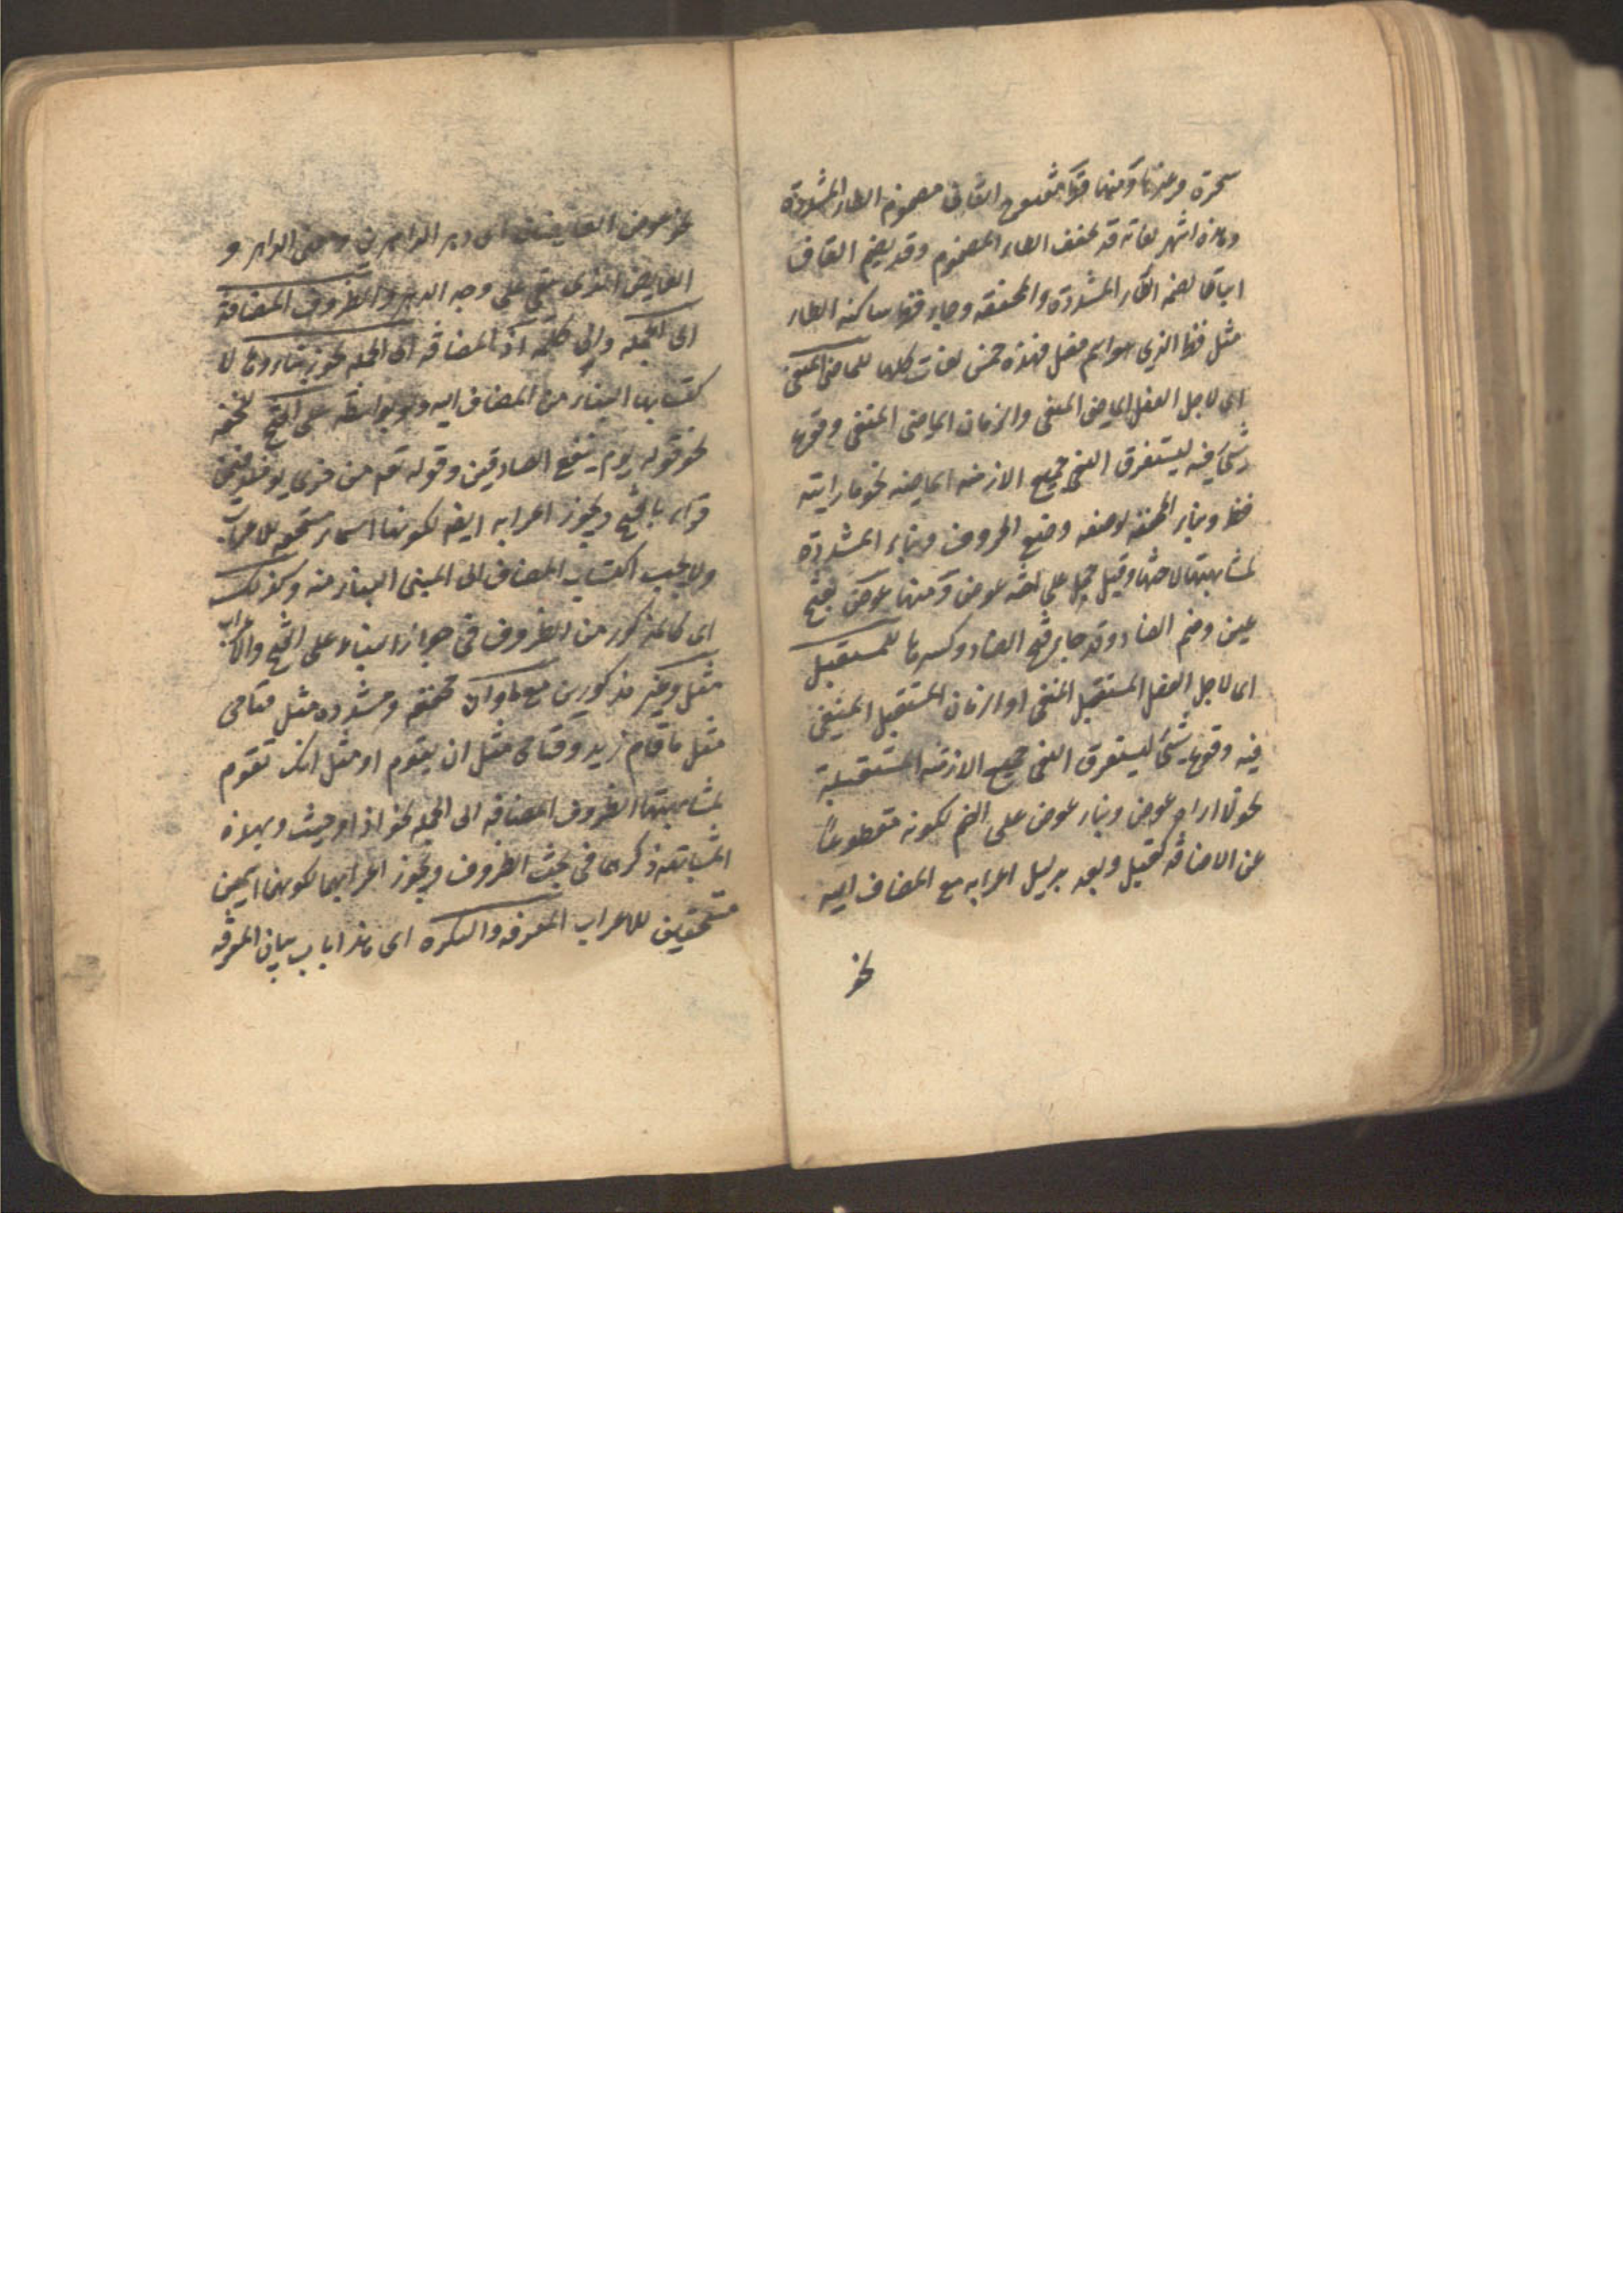 سحرة وغيرها ومنها قط مفتوح القاف مضموم الطاء المشددة
وهذه اشهر لغاته قد تخفف الطاء المضموم وقد يضم القاف
اتباعا لضمة الطاء المشددة والمخففه وجاء قط ساكنه الطاء
مثل قط الذى هو اسم فعل فهذه خمس لغات كلها للماضى المنفى
اى لاجل الفعل الماضى المنفى والزمان الماضى المنفى وقوع
شئ فيه ليستغرق النفى جميع الازمنه الماضيه نحو ما رايته
قط وبناء المخففة لوضعه وضع الحروف وبناء المشددة
لمشابهتها لاختها وقيل حمل على اخته عوض ومنها عوض بفتح
عين وضم الضاد وقد جاء فتح الضاد وكسرها للمستقبل
اى لاجل الفعل المستقبل المنفى او الزمان المستقبل المنفى
فيه وقوع شئ ليستغرق النفى جميع الازمنه المستقبلة
نحو لا اراه عوض وبناء عوض على الضم لكونه مقطوعا
عن الاضافه كقبل وبعد بدليل اعرابه مع المضاف اليه
نحو
نحو عوض العائضين اى دهر الداهرين ومعنى الداهر و
العايض الذى يبقى على وجه الدهر والظروف المضافة
الى الجمله والى كلمة اذ المضافه الى الجمله يجوز بناءوها لا
كتسابها البناء من المضاف اليه ولو بواسطه على الفتح للخفه
نحو قوله يوم ينفع الصادقين وقوله تع من خزى يومئذ فيمن
قراء بالفتح ويجوز اعرابه ايضا لكونها اسماء مستحقه للاعراب
ولا يجب اكتساب المضاف الى المبنى البناء منه وكذلك
اى كالمذكور من الظروف فى جواز البناء على الفتح والاعراب
مثل وغير مذكورين مع ما وان مخففه ومشدده مثل قيامى
مثل ما قام زيد وقيامى مثل ان يقوم او مثل انك تقوم
لمشابهتها الظروف المضافه الى الجمله نحو اذ او حيث ولهذه
المشابهة ذكرهما فى بحث الظروف ويجوز اعرابهما لكونهما اسمين
مستحقين للاعراب المعرفه والنكره اى هذا باب بيان المعرفه